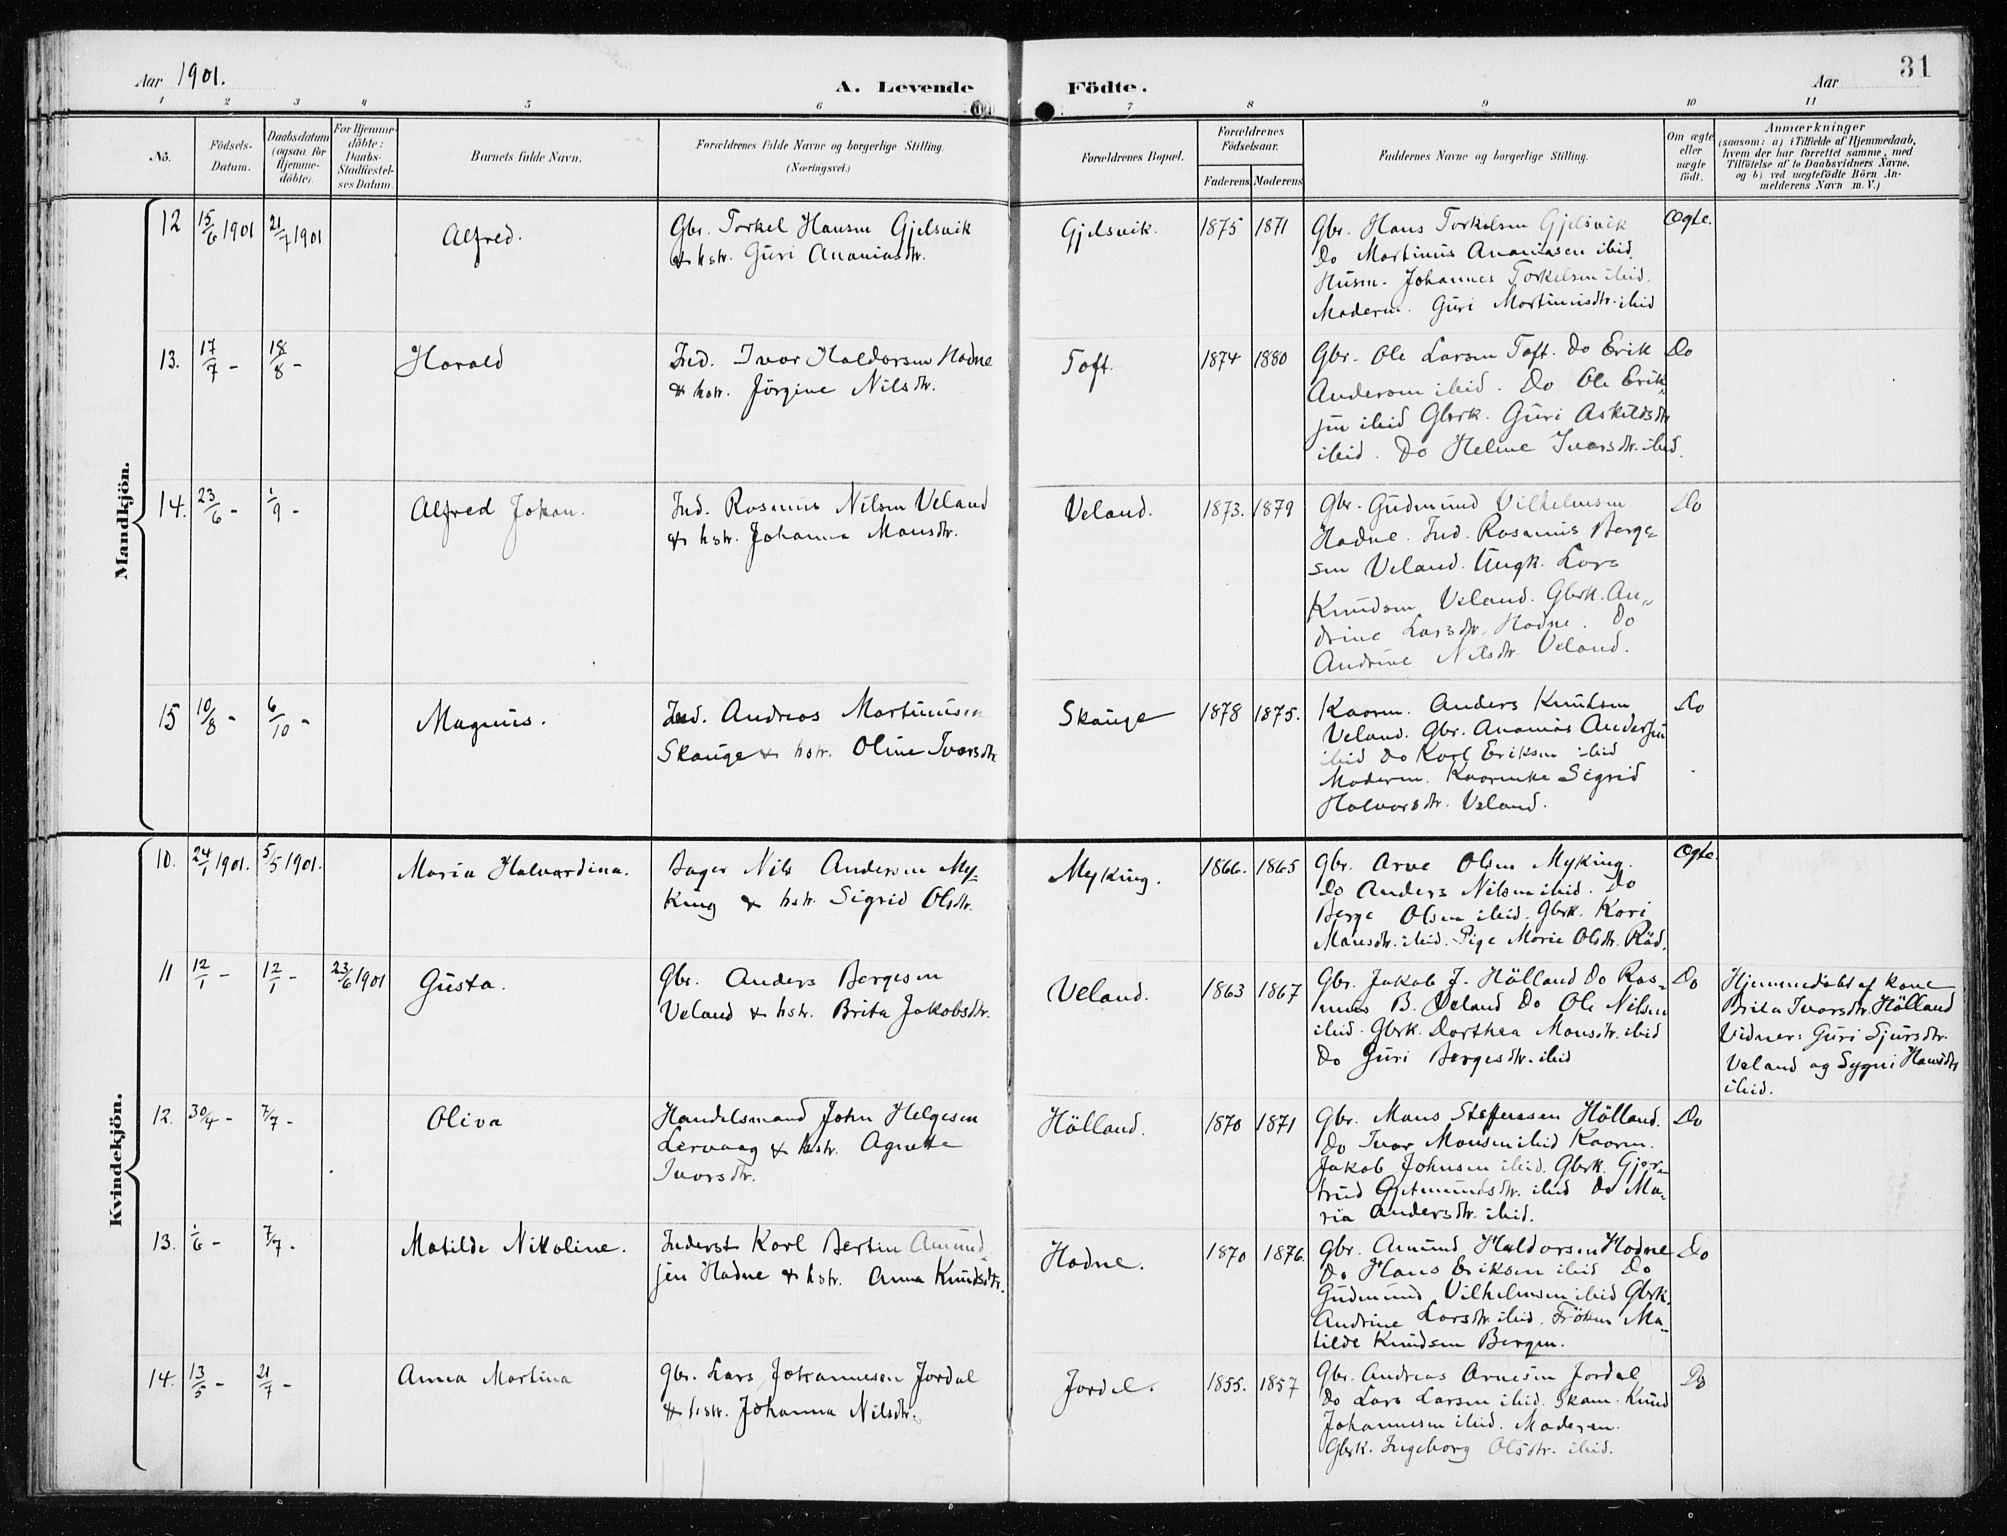 Aar 1901.
A. Levende Födte.
Aar
31
1 2 3 4 5 6 7 8 9 10 11
No.
Födsels-Datum.
Daabsdatum (ogsaa for Hjemme-döbte).
For Hjemme-döbte: Daabs-Stadfæstel-ses Datum.
Barnets fulde Navn.
Forældrenes fulde Navne og borgerlige Stilling.
(Næringsvei.)
Forældrenes Bopæl.
Forældrenes Födselsaar.
Faderens Moderens
Faddernes Navne og borgerlige Stilling.
Om ægte eller uægte födt.
Anmærkninger
(saasom: a) i Tilfælde af Hjemmedaab,
hvem der har forrettet samme, med
Tilföielse af to Daabsvidners Navne,
og b) ved uægtefödte Börn An-
melderens Navn m. V.)
Mandkjön.
12 15/6 1901 21/7 1901
Alfred.
Gbr. Torkel Hansen Gjelsvik
& hstr. Guri Ananiasdtr.
Gjelsvik.
1875 1871
Gbr. Hans Torkelsen Gjelsvik
Do Martinus Ananiasen ibid.
Husm. Johannes Torkelsen ibid.
Moderen. Guri Martinusdtr. ibid
Ægte.
13. 17/7 - 18/8 -
Harald
Ind. Ivar Haldorsen Hadne
& hstr. Jörgine Nilsdtr.
Toft.
1874 1880
Gbr. Ole Larsen Toft. Do Erik
Andersen ibid. Do Ole Erik-
sen ibid Gbrk. Guri Askildsdtr
ibid. Do Helene Ivarsdtr. ibid.
Do
14. 23/6 - 1/9 -
Alfred Johan.
Ind. Rasmus Nilsen Veland
& hstr. Johanna Monsdtr.
Veland.
1873. 1879
Gbr. Gudmund Vilhelmsen
Hadne. Ind. Rasmus Berge-
sen Veland. Ungk. Lars
Knudsen Veland. Gbrk. An-
drine Larsdtr. Hadne. Do
Andrine Nilsdtr Veland.
Do
15 10/8 - 6/10 -
Magnus.
Ind. Andreas Martinusen
Skauge & hstr. Oline Ivarsdtr
Skauge
1878 1875.
Kaarm. Anders Knudsen
Veland. Gbr. Ananias Andersen
ibid Do Karl Eriksen ibid
Moderen. Kaarenke Sigrid
Halvorsdtr. Veland.
Do
Kvindekjön.
10. 24/1 1901. 5/5 1901.
Maria Halvardina.
Bager Nils Andersen My-
king & hstr. Sigrid Olsdtr.
Myking.
1866. 1865
Gbr. Arve Olsen Myking.
Do Anders Nilsen ibid. Do
Berge Olsen ibid. Gbrk. Kari
Monsdtr. ibid. Pige Marie Olsdtr. Räd.
Ægte.
11 12/1 - 12/1 - 23/6 1901
Gusta.
Gbr. Anders Bergesen
Veland & hstr. Brita Jakobsdtr.
Veland.
1863 1867
Gbr. Jakob J. Hölland Do Ras-
mus B. Veland Do Ole Nilsen
ibid. Gbrk. Dorthea Monsdtr. ibid
Do Guri Bergesdtr. ibid
Do
Hjemmedöbt af kone
Brita Ivarsdtr. Hölland
Vidner: Guri Sjursdtr.
Veland og Sygni Hansdtr
ibid.
12. 30/4 - 7/7 -
Oliva
Handelsmand John Helgesen
Lervaag & hstr. Agnette
Ivarsdtr.
Hölland.
1870 1871
Gbr. Mons Steffensen Hölland.
Do Ivar Monsen ibid Kaarm.
Jakob Johnsen ibid. Gbrk. Gjer-
trud Gjetmundsdtr. ibid Do Ma-
ria Andersdtr. ibid.
Do
13. 1/6 - 7/7 -
Matilde Nikoline.
Inderst Karl Bertin Amund-
sen Hadne & hstr. Anna Knudsdtr.
Hadne.
1870 1876.
Gbr. Amund Haldorsen Hadne
Do Hans Eriksen ibid Do
Gudmund Vilhelmsen ibid Gbrk.
Andrine Larsdtr ibid. Fröken Ma-
tilde Knudsen Bergen.
Do
14. 13/5 - 21/7 -
Anna Martina
Gbr. Lars Johannesen Jordal
& hstr. Johanna Nilsdtr.
Jordal.
1855. 1857
Gbr. Andreas Arnesen Jordal
Do Lars Larsen ibid. Skom. Knud
Johannesen ibid. Moderen.
Gbrk. Ingeborg Olsdtr. ibid.
Do